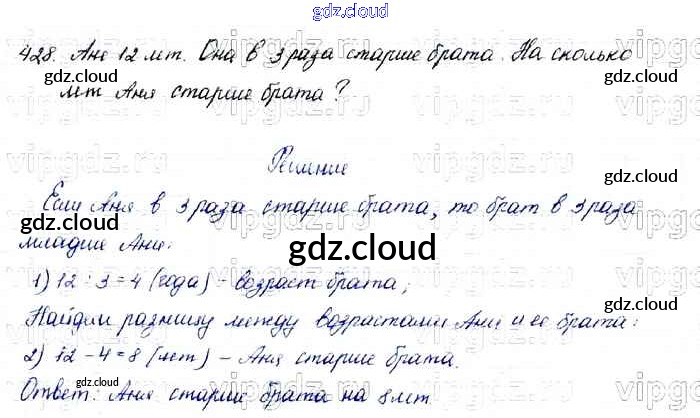 gdz.cloud
428. Ане 12 лет. Она в 3 раза старше брата. На сколько
gdz.cloud gdz.cloud
лет Аня старше брата?
Решение
gdz.cloud
Если Аня в 3 раза старше брата, то брат в 3 раза
gdz.cloud gdz.cloud
младше Ани:
gdz.cloud
1) 12 : 3 = 4 (года) - возраст брата;
gdz.cloud
Найдем разницу между возрастами Ани и ее брата:
2) 12 - 4 = 8 (лет) - Аня старше брата.
gdz.cloud gdz.cloud gdz.cloud
Ответ: Аня старше брата на 8 лет.